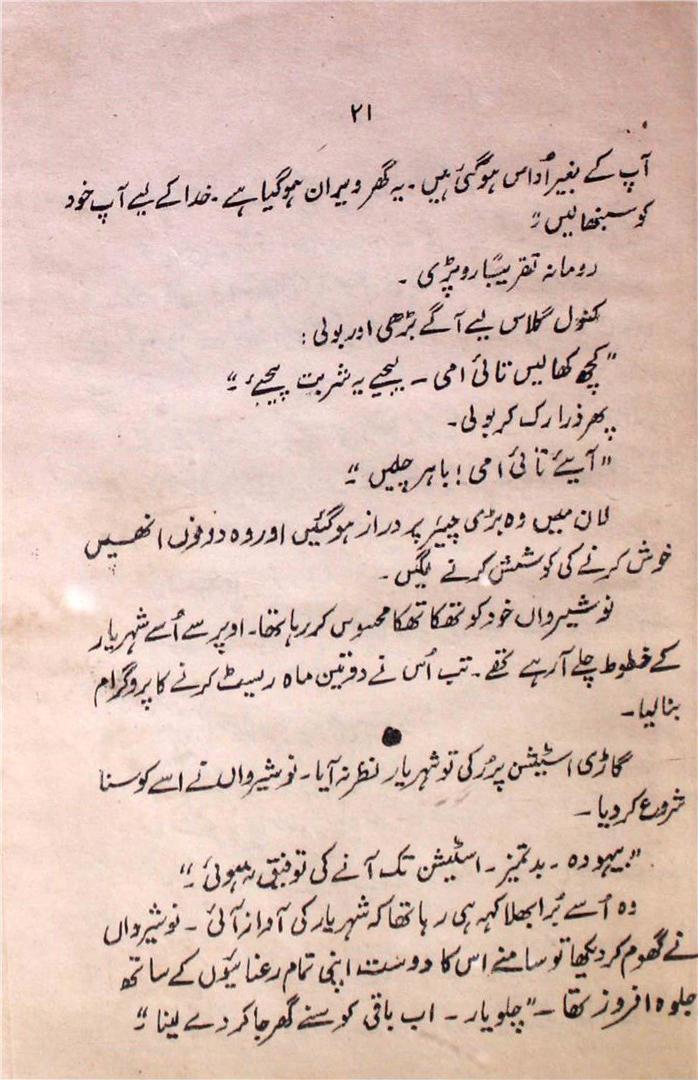 ۲۱
آپ کے بغیر اُداس ہوگئی ہیں۔ یہ گھر ویران ہوگیا ہے۔ خدا کے لیے آپ خود
کو سنبھالیں"
رومانہ تقریباً رو پڑی۔
کنول گلاس لیے آگے بڑھی اور بولی:
"کچھ کھالیں تائی امی۔ لیجیے یہ شربت پیجیئے"
پھر ذرا رک کر بولی۔
"آیئے تائی امی! باہر چلیں"
لان میں وہ بڑی چیئر پر دراز ہوگئیں اور وہ دونوں انھیں
خوش کرنے کی کوشش کرنے لگیں۔
نوشیرواں خود کو تھکا تھکا محسوس کررہا تھا۔ اوپر سے اُسے شہریار
کے خطوط چلے آرہے تھے۔ تب اُس نے دو تین ماہ ریسٹ کرنے کا پروگرام
بنالیا۔
گاڑی اسٹیشن پر رُکی تو شہریار نظر نہ آیا۔ نوشیرواں نے اسے کوسنا
شروع کردیا۔
"بیہودہ۔ بدتمیز۔ اسٹیشن تک آنے کی توفیق نہ ہوئی۔"
وہ اُسے بُرا بھلا کہہ ہی رہا تھا کہ شہریار کی آواز آئی۔ نوشیرواں
نے گھوم کر دیکھا تو سامنے اس کا دوست اپنی تمام رعنائیوں کے ساتھ
جلوہ افروز تھا۔ "چلو یار۔ اب باقی کوسنے گھر جاکر دے لینا"